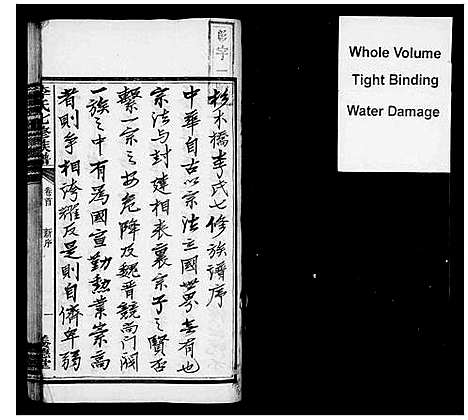 彰字一
杉木橋李氏七修族譜序
中華自古以宗法立國世界未有也
宗法与封建相表裏宗子之賢否
繫一宗之安危降及魏晋競尚门閥
一族之中有為國宣勤勲業崇高
者則争相誇耀反是則自儕卑弱
李氏七修族譜
卷首
新序
一
Whole Volume
Tight Binding
Water Damage